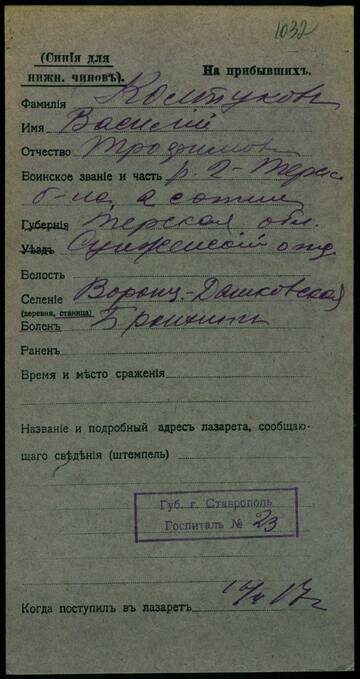 1032
(Синія для
нижн. чиновъ).
На прибывшихъ.
Фамилія Колтуковъ
Имя Василій
Отчество Трофимов
Воинское званіе и часть р. 2-Терск
б-на, а сотни
Губернія Терская обл.
Уѣздъ Сунженскій отд
Волость
Селеніе Воронц.-Дашковская
(деревня, станица)
Боленъ Бронхитъ
Раненъ
Время и мѣсто сраженія
Названіе и подробный адресъ лазарета, сообщаю-
щаго свѣдѣнія (штемпель)
Губ. г. Ставрополь
Госпиталь № 23
Когда поступилъ въ лазаретъ 17 г